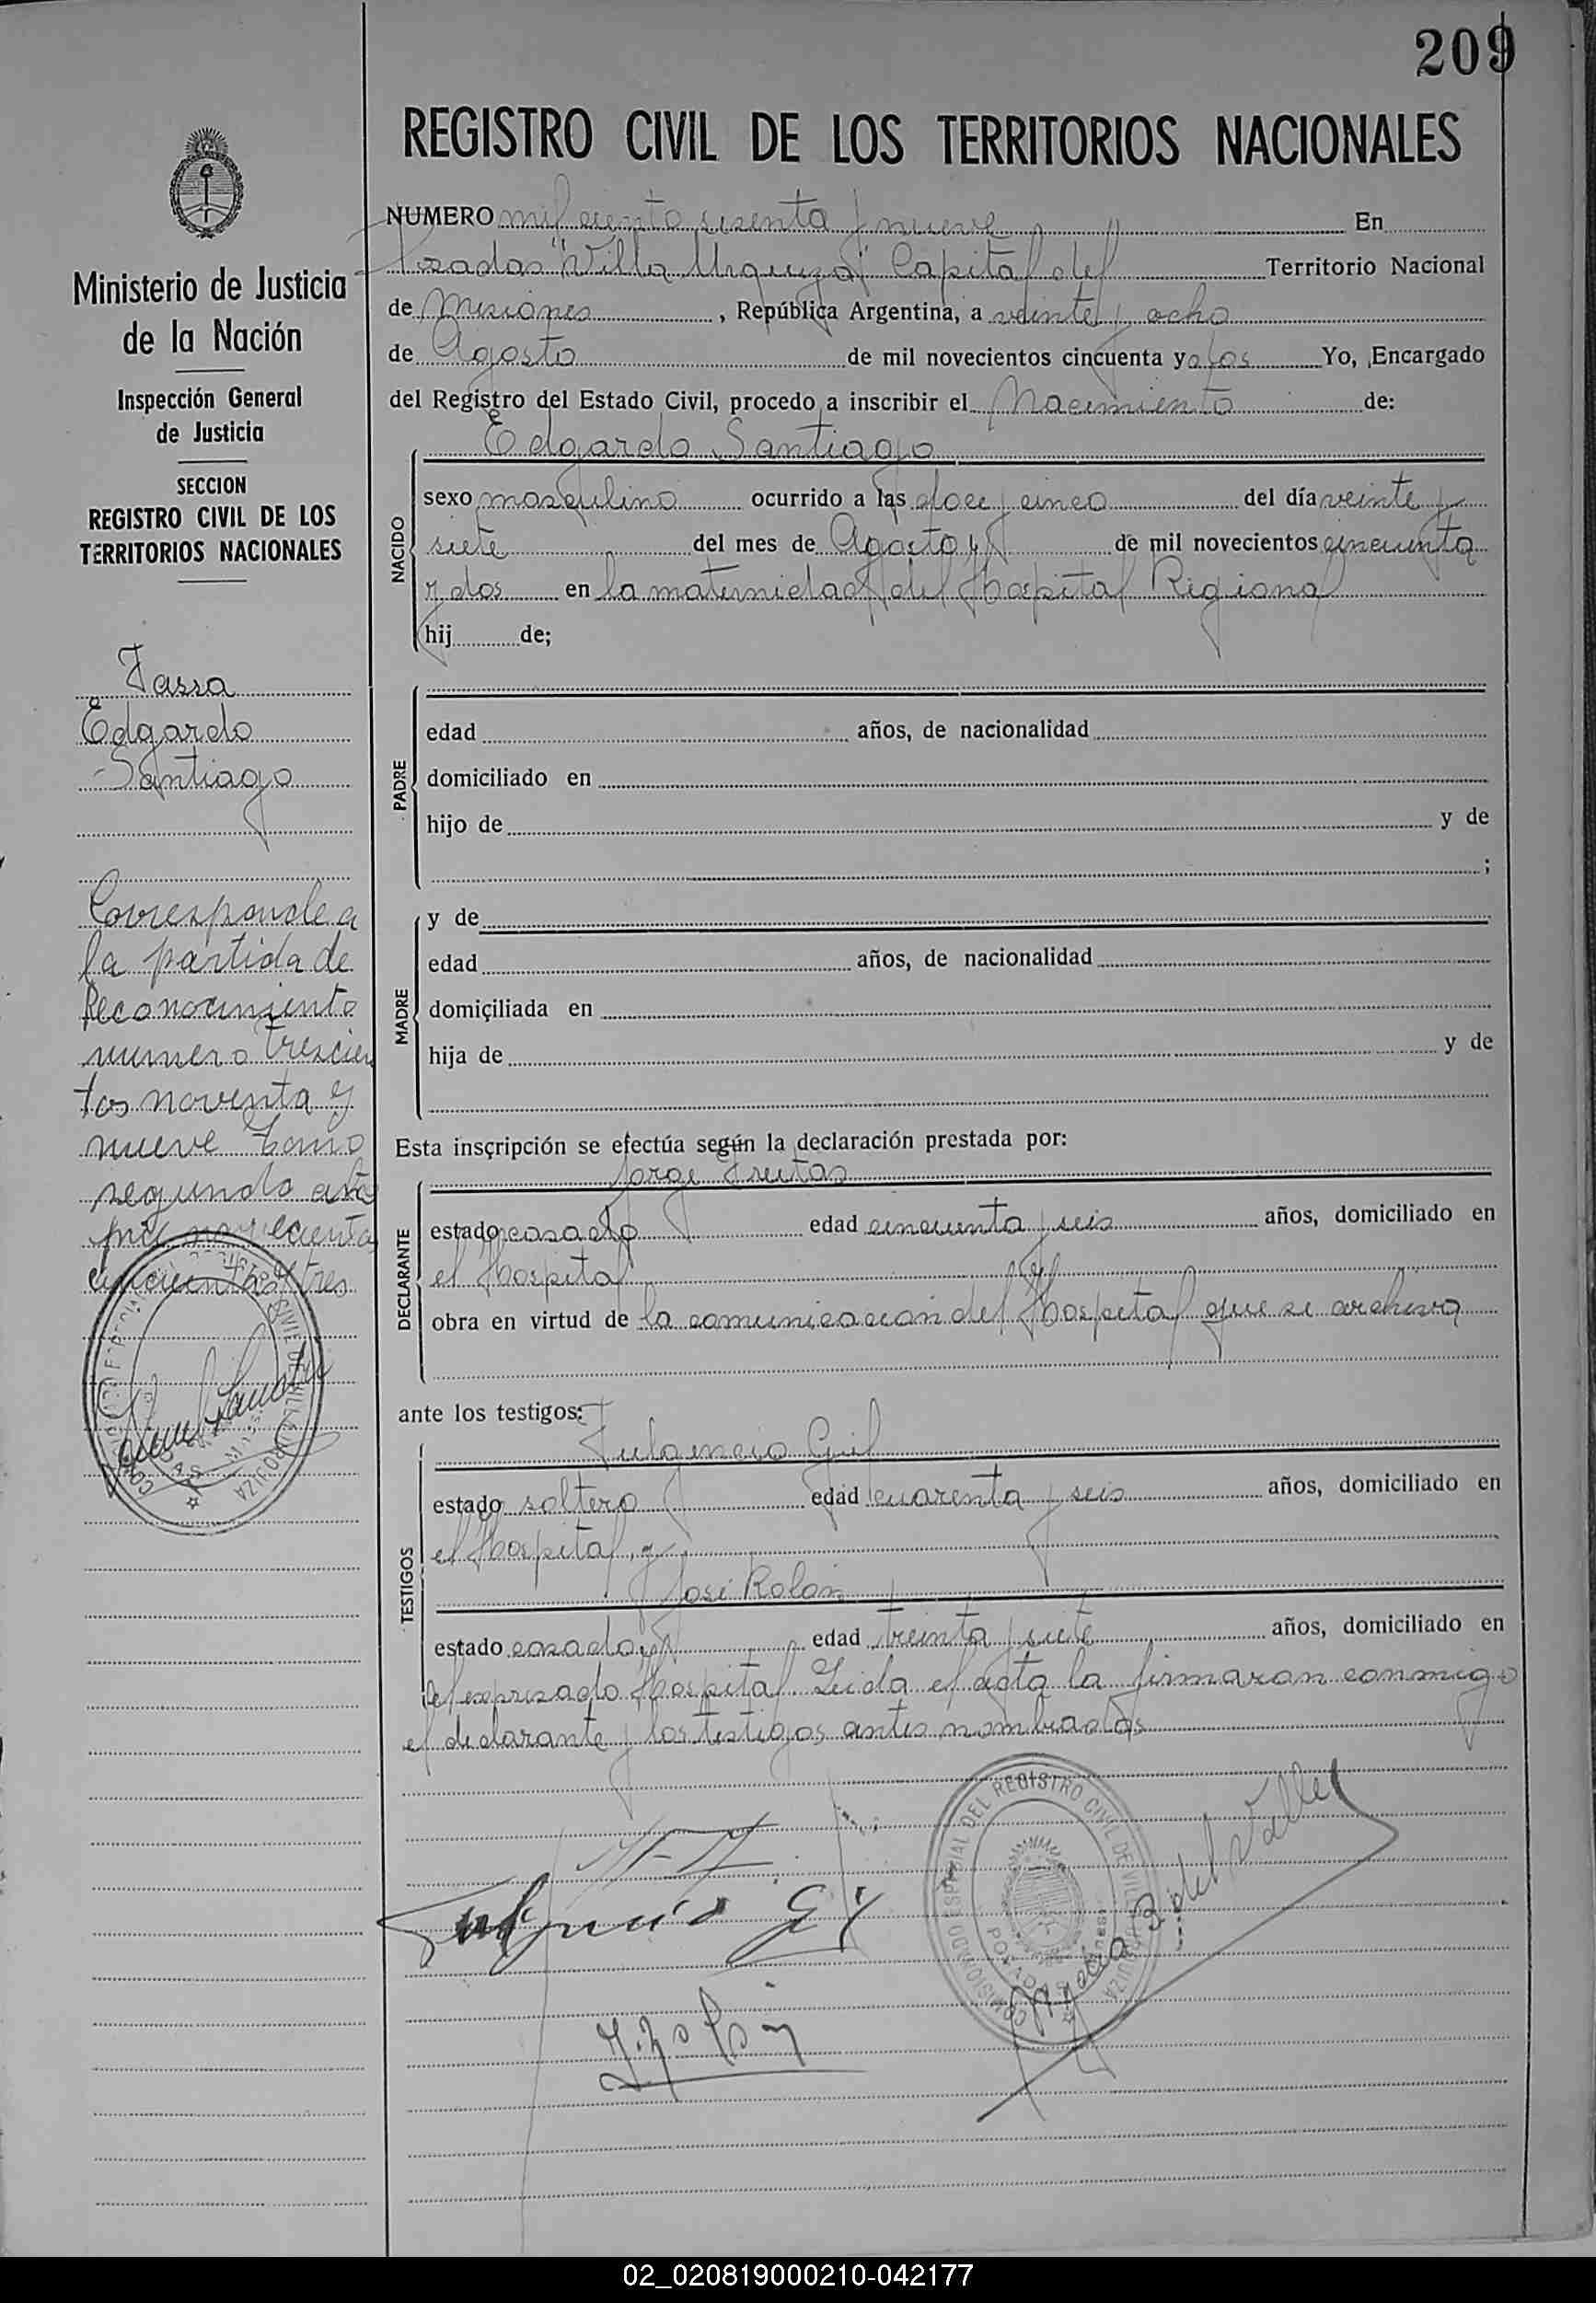 209
REGISTRO CIVIL DE LOS TERRITORIOS NACIONALES
Ministerio de Justicia
de la Nación
Inspección General
de Justicia
SECCION
REGISTRO CIVIL DE LOS
TERRITORIOS NACIONALES
Tassa
Edgardo
Santiago
Corresponde a
la partida de
Reconocimiento
numero trescien
tos noventa y
nueve Tomo
segundo año
mil novecientos
cincuenta y tres
NUMERO mil ciento sesenta y nueve En
Posadas "Villa Urquiza" Capital del Territorio Nacional
de Misiones, República Argentina, a veinte y ocho
de Agosto de mil novecientos cincuenta y dos Yo, Encargado
del Registro del Estado Civil, procedo a inscribir el Nacimiento de:
Edgardo Santiago
NACIDO
sexo masculino ocurrido a las doce y cinco del día veinte y
siete del mes de Agosto de mil novecientos cincuenta
y dos en la maternidad del Hospital Regional
hij de;
PADRE
edad años, de nacionalidad
domiciliado en
hijo de y de
;
MADRE
y de
edad años, de nacionalidad
domiciliada en
hija de y de
Esta inscripción se efectúa según la declaración prestada por:
Jorge Freitas
DECLARANTE
estado casado edad cincuenta y seis años, domiciliado en
el Hospital
obra en virtud de la comunicacion del Hospital que se archiva
ante los testigos:
Fulgencio Gil
TESTIGOS
estado soltero edad cuarenta y seis años, domiciliado en
el Hospital, y
José Rolón
estado casado edad treinta y siete años, domiciliado en
el expresado Hospital. Leida el acta la firmaran conmigo
el declarante y los testigos antes nombrados
Fulgencio Gil
DEL REGISTRO CIVIL DE VILLA URQUIZA
POSADAS
del Valle
02_020819000210-042177